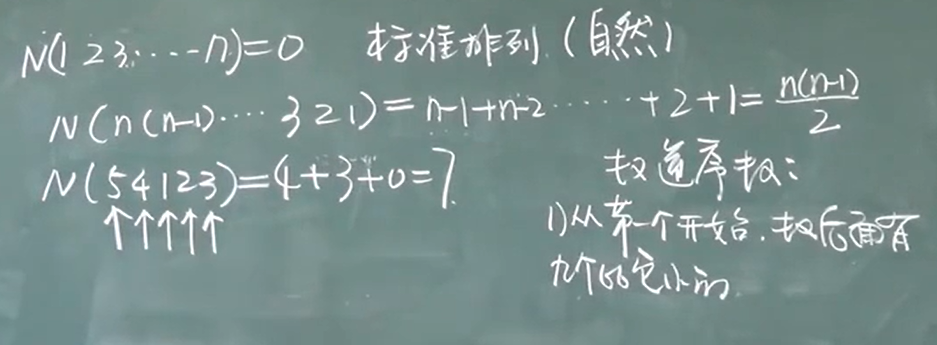 N(1 2 3……n)=0 标准排列（自然）
N(n(n-1)…321)=n-1+n-2……+2+1=n(n-1)/2
N(54123)=4+3+0=7.
↑↑↑↑↑
找逆序数:
1)从第一个开始.找后面有
几个比它小的